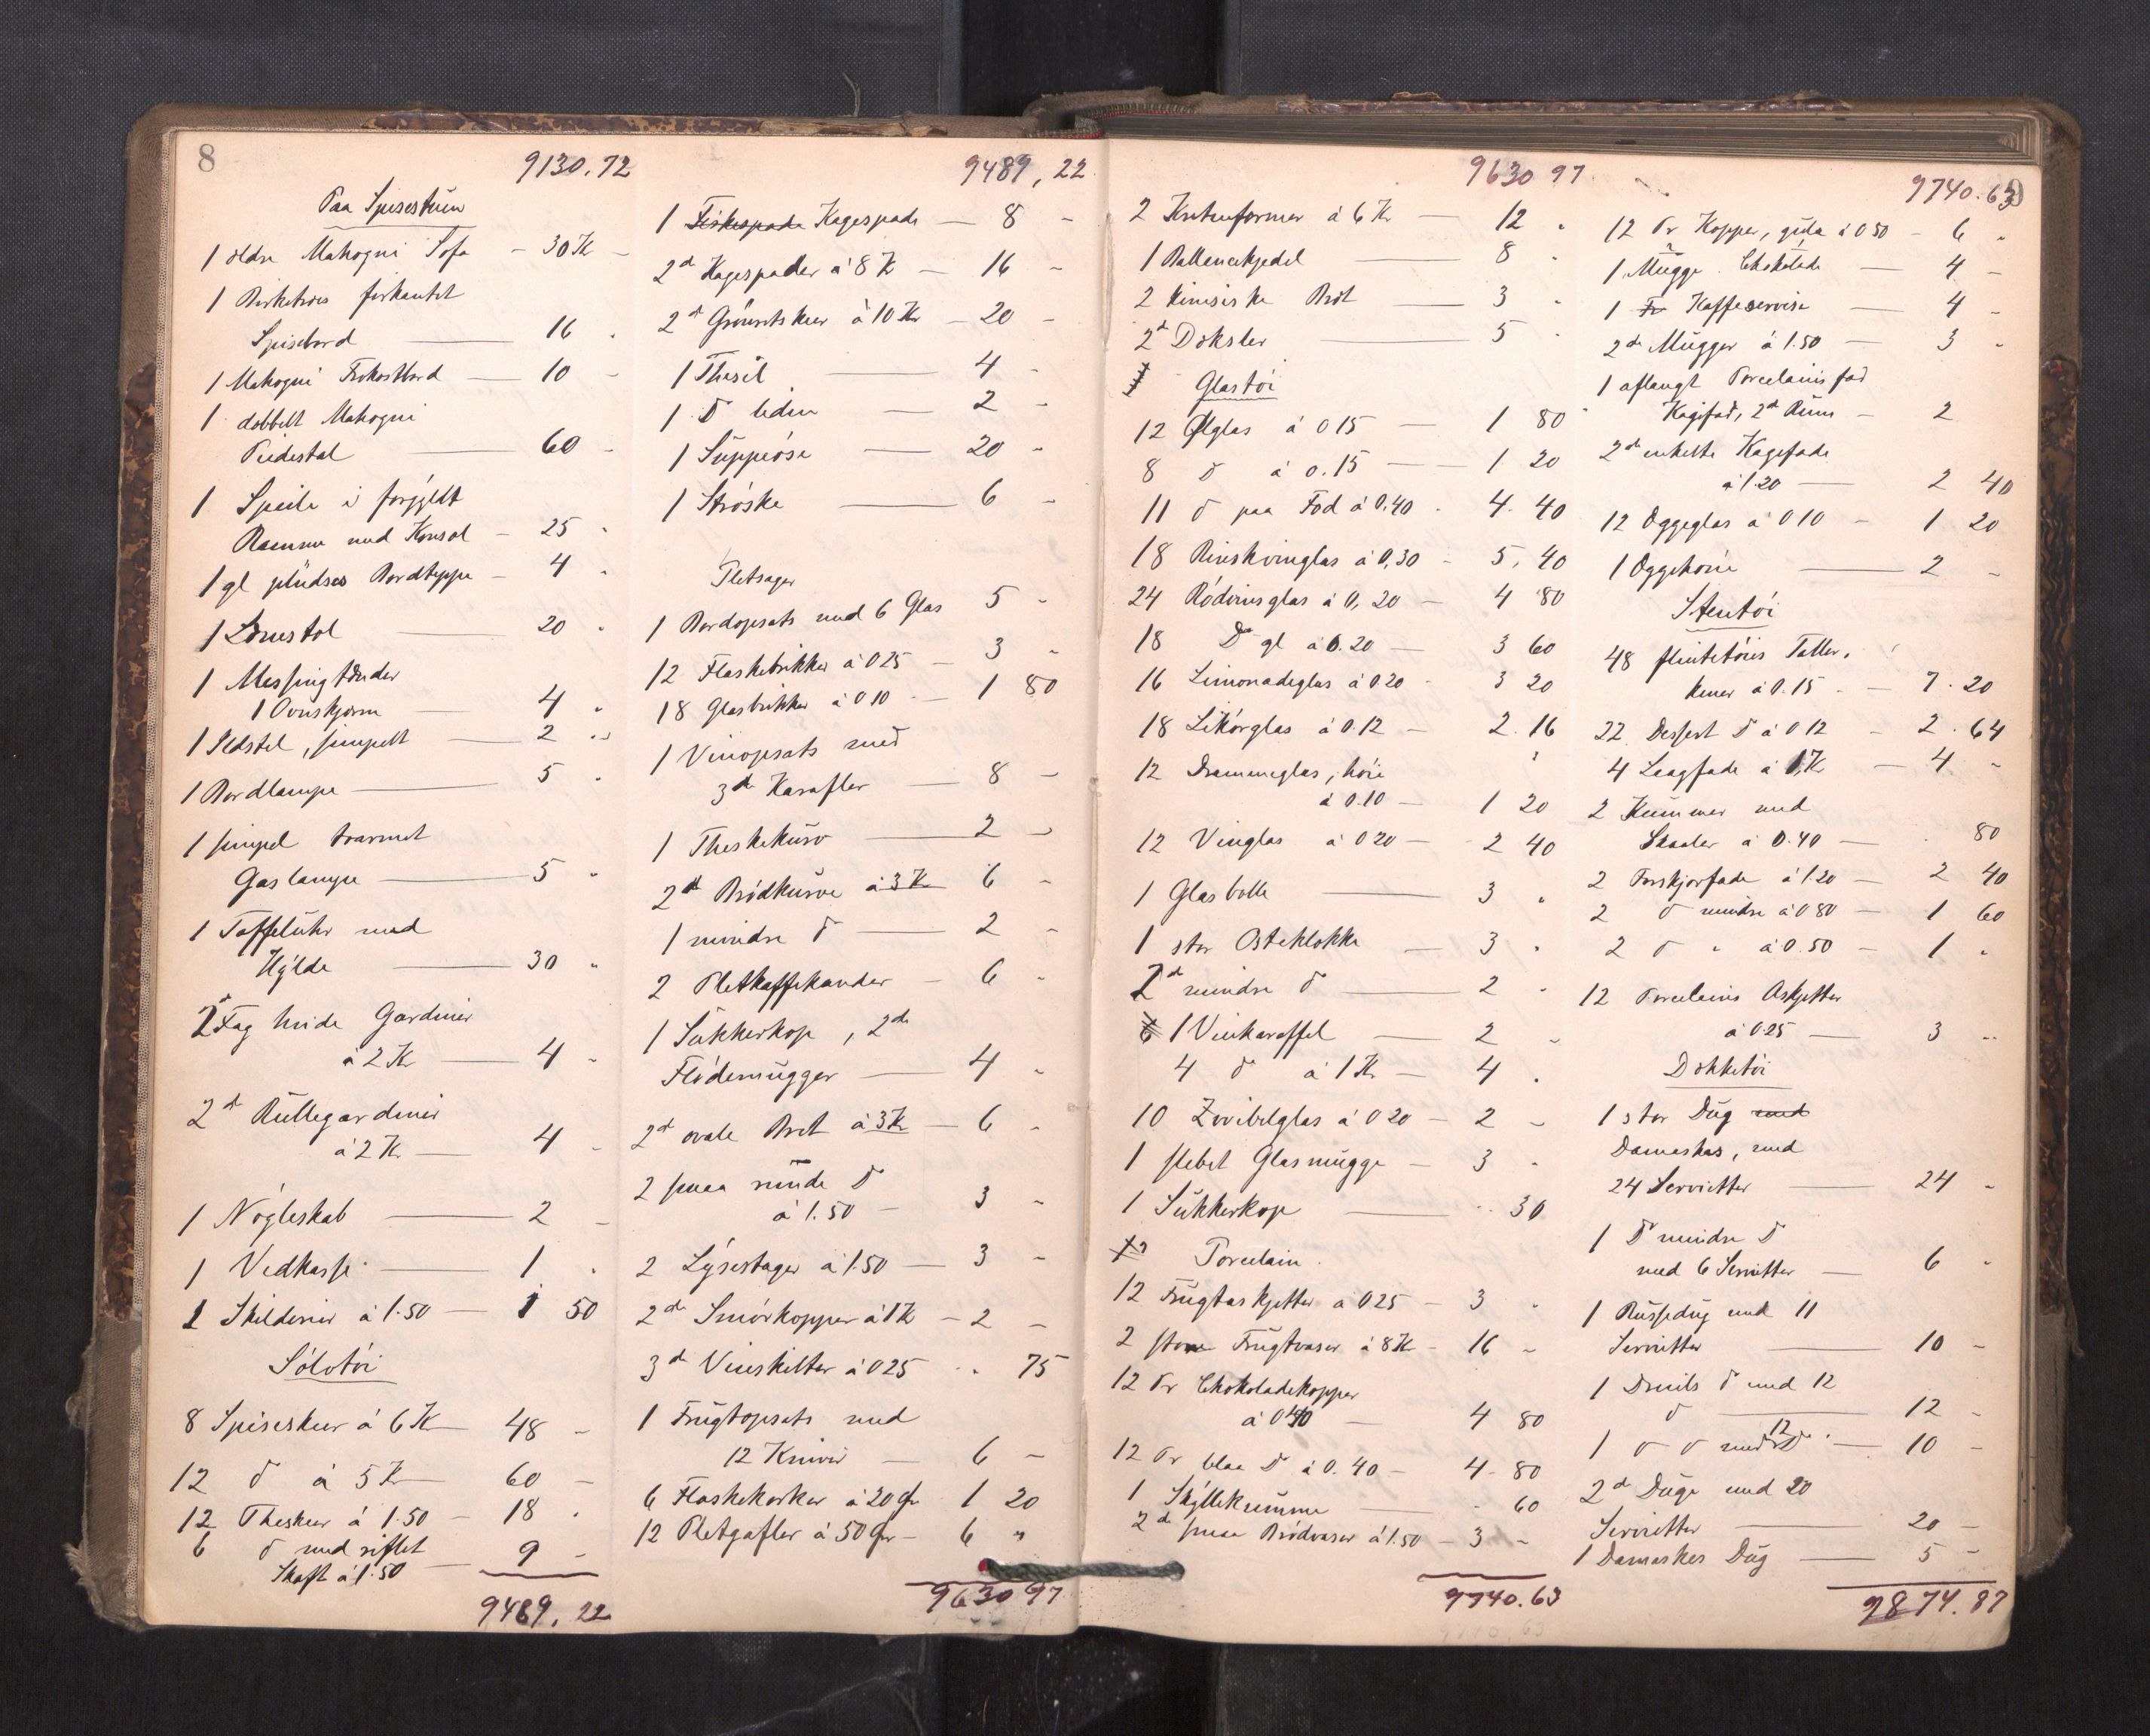 8
9130.72
Paa Spisestuen
1 ældre Mahogni Sofa - 30 Kr -
1 Birketræs firkantet
Spisebord — 16 -
1 Mahogni Frokostbord — 10 -
1 dobbelt Mahogni
Piedestal — 60 -
1 Speile i forgyldt
Ramme med Konsol - 25 -
1 gl plydses Bordteppe - 4 -
1 Lænestol — 20 -
1 Messingtænder
1 Ovnskjærm — 4 -
1 Ildstel, simpelt — 2 -
1 Bordlampe — 5 -
1 simpel toarmet
Gaslampe — 5 -
1 Taffeluhr med
Hylde — 30 -
2 Fag hvide Gardiner
à 2 Kr — 4 -
2d Rullegardiner
à 2 Kr — 4 -
1 Nøgleskab — 2 -
1 Vedkasse — 1 -
1 Skilderier à 1.50 — 1 50
Sølvtøi
8 Spiseskeer à 6 Kr — 48 -
12 d à 5 Kr — 60 -
12 Theskeer à 1.50 - 18 -
6 d med riflet
Skaft à 1.50 — 9 -
9489.22
9489,22
1 Fiskespade Kagespade — 8 -
2d Kagespader à 8 Kr — 16 -
2d Grøntskeer à 10 Kr - 20 -
1 Thesil — 4 -
1 D liden — 2 -
1 Suppeøse — 20 -
1 Strøske — 6 -
Pletsager
1 Bordopsats med 6 Glas 5 -
12 Flaskebrikker à 025 - 3 -
18 Glasbrikker à 010 - 1 80
1 Vinopsats med
3de Karafler — 8 -
1 Theskekurv — 2 -
2d Brødkurve à 3 Kr 6 -
1 mindre d — 2 -
2 Pletkaffekander - 6 -
1 Sukkerkop, 2de
Flødemugger — 4 -
2d ovale Bret à 3 Kr - 6 -
2 smaa runde d
à 1.50 - 3 -
2 Lysestager à 1.50 — 3 -
2de Smørkopper à 1 Kr - 2 -
3de Vinskilter à 025 - . 75
1 Frugtopsats med
12 Knive — 6 -
6 Flaskekorker à 20 Øre 1 20
12 Pletgafler à 50 Øre - 6 "
9630 97
9630 97
2 Kr à 6 Kr — 12 -
1 Kjedel — 8 -
2 kinesiske Bret — 3 -
2d — 5 -
Glastøi
12 Ølglas à 015 — 1 80
8 d à 0.15 — 1 20
11 d paa Fod à 0,40 - 4. 40
18 Rinskvinglas à 0,30 - 5, 40
24 Rødvinsglas à 0,20 - 4 80
18 D gl à 0.20 — 3 60
16 Limonadeglas à 020 - 3 20
18 Likørglas à 0.12 - 2. 16
12 Drammeglas, høie
à 0.10 — 1 20
12 Vinglas à 020 — 2 40
1 Glasbolle — 3 -
1 stor Osteklokke — 3 -
2d mindre d — 2 -
1 Vinkaraffel — 2 -
4 d à 1 Kr — 4 -
10 Zwibelglas à 020 — 2 -
1 slebet Glasmugge — 3 -
1 Sukkerkop — . 30
Porcelain
12 Frugtaskjetter à 025 - 3 -
2 store Frugtvaser à 8 Kr - 16 -
12 Pr Chokoladekopper
à 040 — 4 80
12 Pr blaa D à 0.40 - 4. 80
1 Skyllekumme — . 60
2de smaa Brødvaser à 1.50 - 3 -
9740.63
9
9740.63
12 Pr Kopper, gule à 050 - 6 -
1 Mugge Chokolade — 4 -
1 Fr Kaffeservise — 4 -
2de Mugger à 1.50 — 3 -
1 aflangt Porcelainsfad
Kagefad, 2d Runs — 2
2d enkelte Kagefade
à 1.20 — 2 40
12 Æggeglas à 010 - 1 20
1 Æggehøne — 2 -
Stentøi
48 flintetøies Taller-
kener à 0.15 - 7. 20
22 Dessert D à 012 - 2. 64
4 Lagfade à 1 Kr — 4 -
2 Kummer med
Skaaler à 0.40 — . 80
2 Forskjærfade à 1.20 - 2 40
2 d mindre à 080 - 1 60
2 d " à 0.50 - 1 -
12 Porcelains Askjetter
à 025 — 3 -
Dækketøi
1 stor Dug med
Damaskes, med
24 Servietter — 24 -
1 D mindre D
med 6 Servietter — 6 -
1 Russedug med 11
Servietter — 10 -
1 Dreils d med 12
d — 12 -
1 d d med 12 D — 10 -
2d Duge med 20
Servietter — 20 -
1 Damaskes Dug — 5 -
9874.87